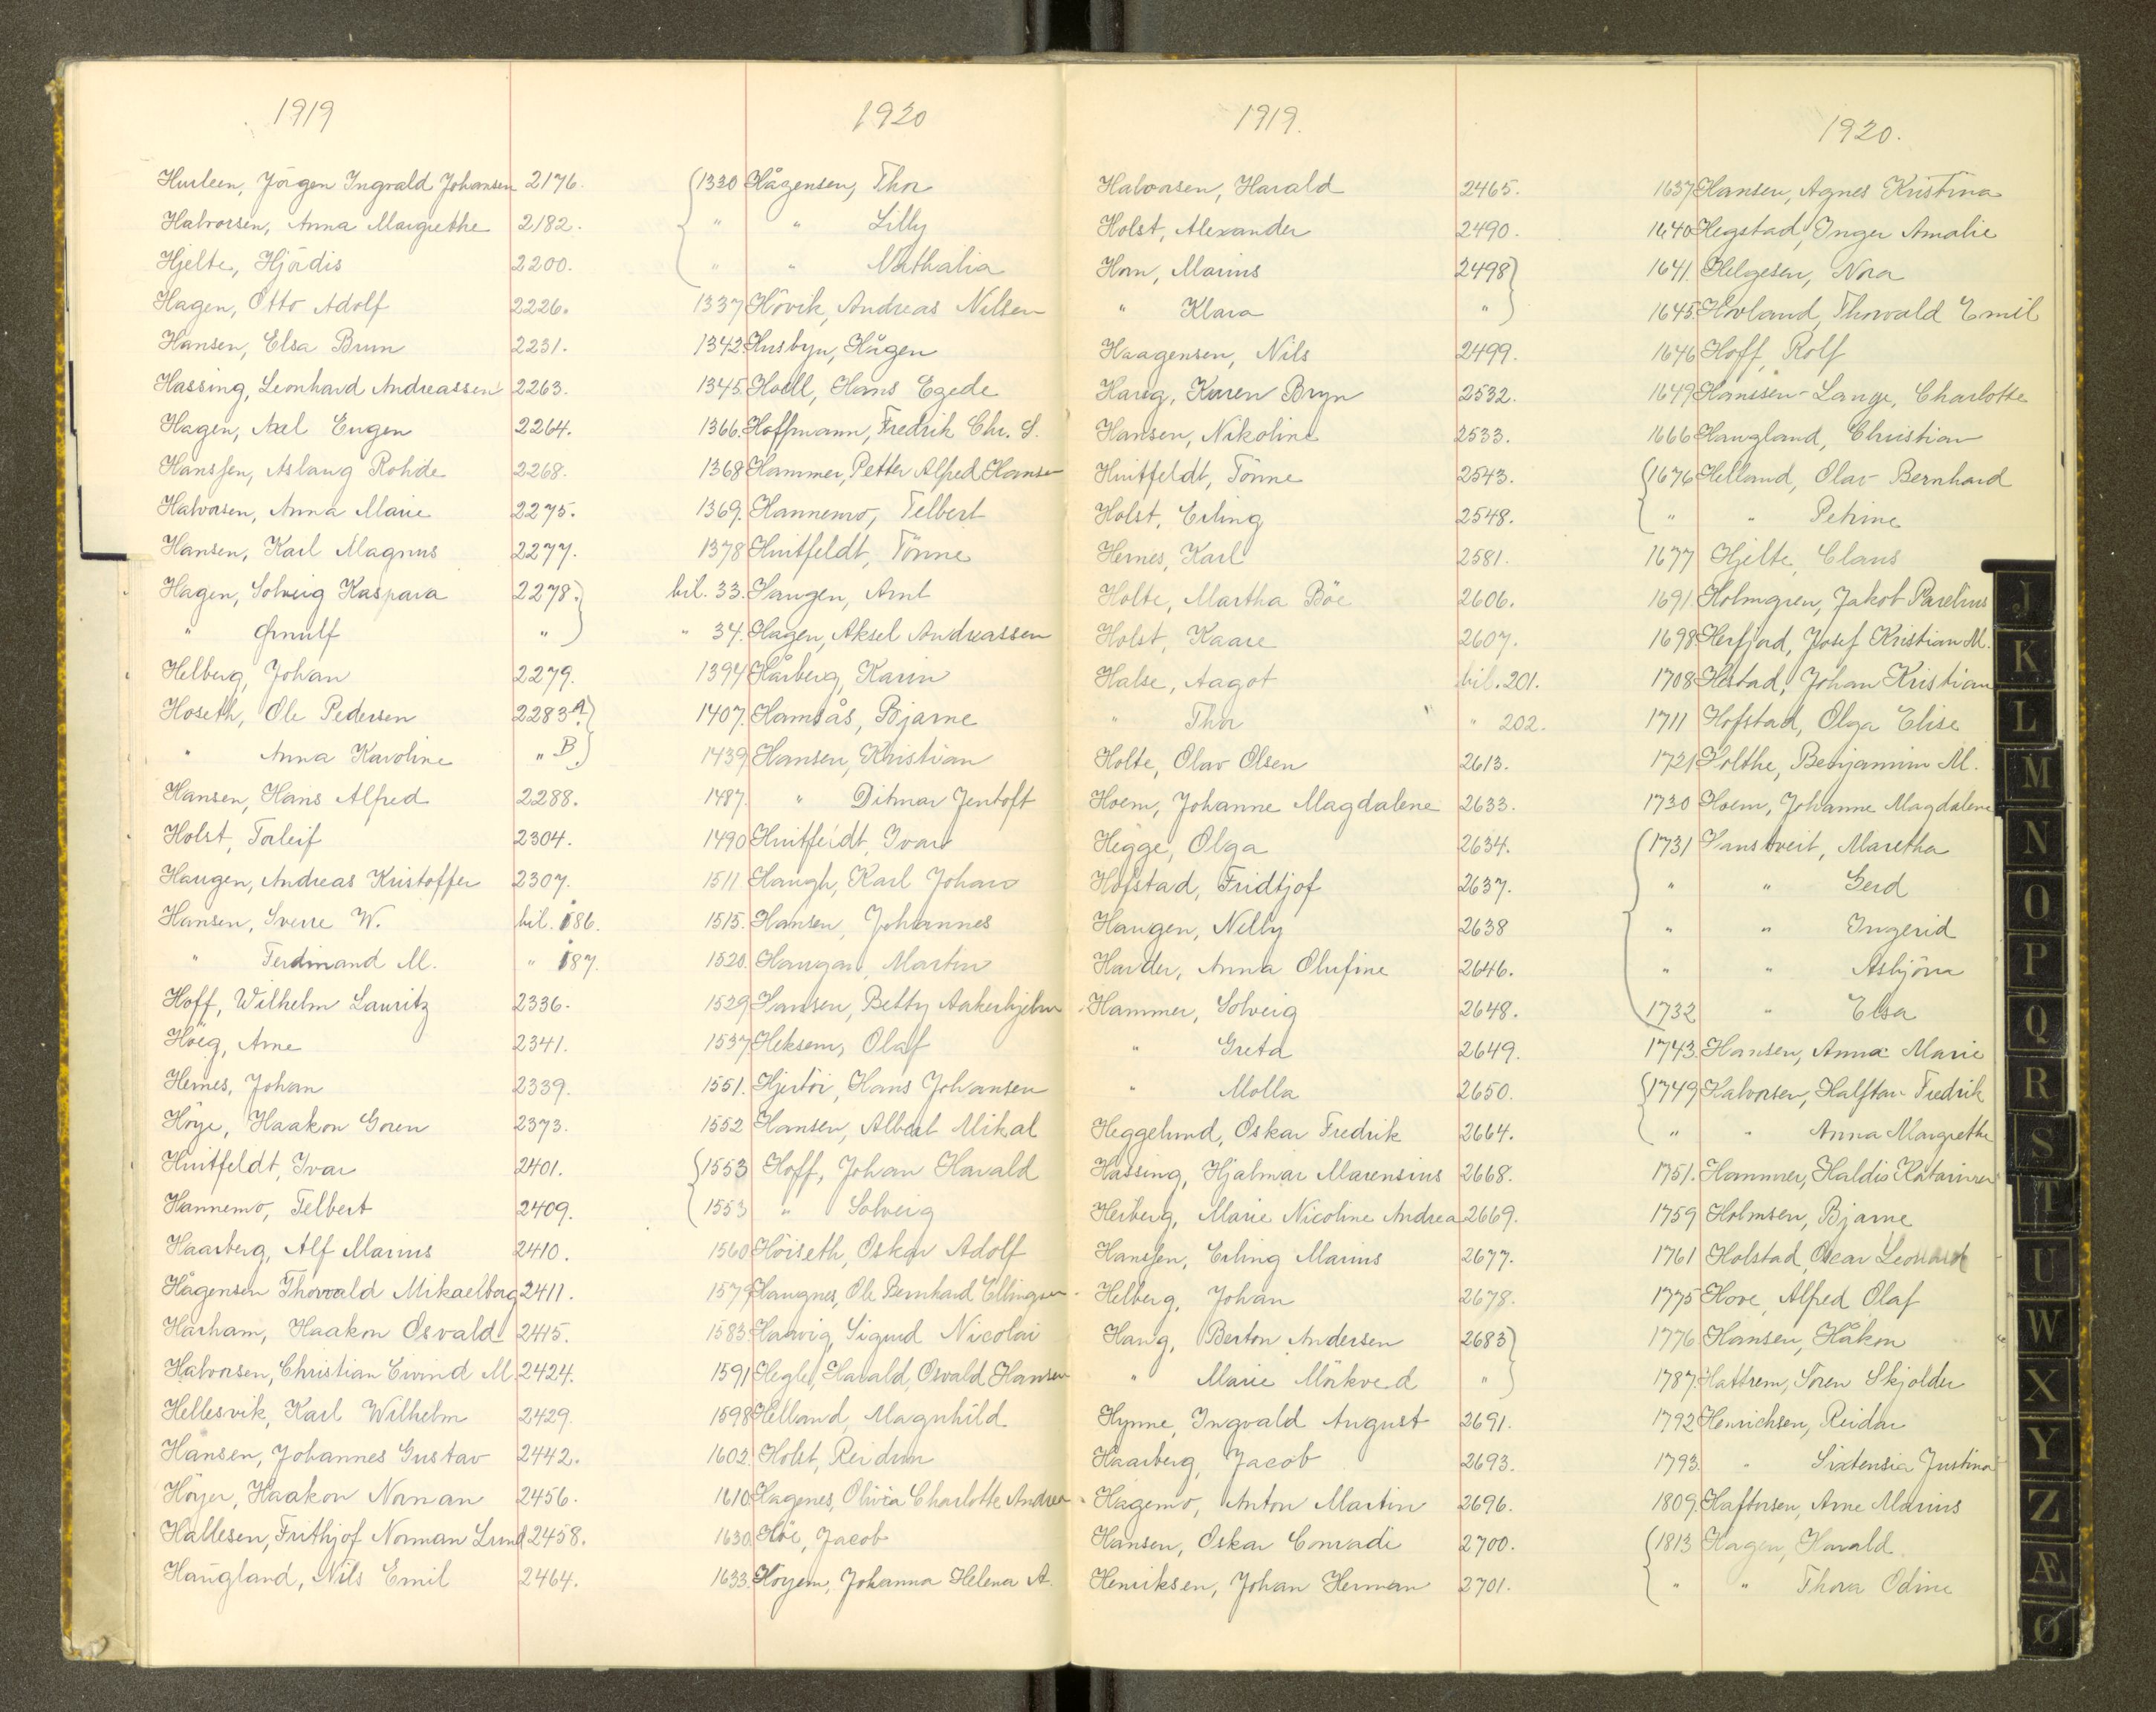 1919
Husleen, Jörgen Ingvald Johansen 2176.
Halvorsen, Anna Margrethe 2182.
Hjelte, Hjördis 2200.
Hagen, Otto Adolf 2226.
Hansen, Elsa Brun 2231.
Hassing, Leonhard Andreassen 2263.
Hagen, Axel Eugen 2264.
Hanssen, Aslaug Rohde 2268.
Halvorsen, Anna Marie 2275.
Hansen, Karl Magnus 2277.
Hagen, Solveig Kaspara 2278.
" Ørnulf "
Helberg, Johan 2279.
Hoseth, Ole Pedersen 2283 A.
" Anna Karoline " B.
Hansen, Hans Alfred 2288.
Holst, Torleif 2304.
Haugen, Andreas Kristoffer 2307.
Hansen, Sverre W. bil. 186.
" Ferdinand M. " 187.
Hoff, Wilhelm Lauritz 2336.
Höeg, Arne 2341.
Hernes, Johan 2339.
Höye, Haakon Goren 2373.
Huitfeldt, Ivar 2401.
Hannemo, Telbert 2409.
Haarberg, Alf Marius 2410.
Hågensen Thorvald Mikaelborg 2411.
Harham, Haakon Osvald 2415.
Halvorsen, Christian Eivind M. 2424.
Hellesvik, Karl Wilhelm 2429.
Hansen, Johannes Gustav 2442.
Höyer, Haakon Norman 2456.
Hallesen, Frithjof Norman Lund 2458.
Haugland, Nils Emil 2464.
1920
1330 Hågensen, Thor
" " Lilly
" " Nathalia
1337 Hövik, Andreas Nilsen
1342 Husbyn, Hågen
1345. Hoell, Hans Egede
1366. Hoffmann, Fredrik Chr. S.
1368 Hammer, Petter Alfred Hansen
1369. Hannemo, Telbert
1378 Huitfeldt, Tönne
bil. 33. Haugen, Arnt
" 34. Hagen, Aksel Andreassen
1394 Hårberg, Karin
1407. Hamsås, Bjarne
1439 Hansen, Kristian
1487. " Ditmar Jentoft
1490 Huitfeldt, Ivar
1511 Haugh, Karl Johan
1515. Hansen, Johannes
1520. Haugan, Martin
1529 Hansen, Betty Aakerhjelm
1537 Heksem, Olaf
1551. Hjertöi, Hans Johansen
1552 Hansen, Albert Mikal
1553 Hoff, Johan Harald
1553 " Solveig
1560 Höiseth, Oskar Adolf
1579 Haugnes, Ole Bernhard Ellingsen
1583 Haarvig, Sigurd Nicolai
1591 Hegle, Harald Osvald Hansen
1598 Helland, Magnhild
1602. Holst, Reidun
1610 Hagenes, Olivia Charlotte Andrea
1630. Höe, Jacob
1633. Höyem, Johanna Helena A.
1919.
Halvorsen, Harald 2465.
Holst, Alexander 2490.
Horn, Marius 2498
" Klara "
Haagensen, Nils 2499.
Hareg, Karen Bryn 2532.
Hansen, Nikoline 2533.
Huitfeldt, Tönne 2543.
Holst, Erling 2548.
Hernes, Karl 2581.
Holte, Martha Böe 2606.
Holst, Kaare 2607.
Halse, Aagot bil. 201.
" Thor " 202.
Holte, Olav Olsen 2613.
Hoem, Johanne Magdalene 2633.
Hegge, Olga 2634.
Hofstad, Fridtjof 2637.
Haugen, Nelly 2638
Harder, Anna Olufine 2646.
Hammer, Solveig 2648.
" Greta 2649.
" Molla 2650.
Heggelund, Oskar Fredrik 2664.
Hassing, Hjalmar Marensius 2668.
Herberg, Marie Nicoline Andrea 2669.
Hanssen, Erling Marius 2677.
Helberg, Johan 2678.
Haug, Berton Andersen 2683
" Marie Mörkved "
Hynne, Ingvald August 2691.
Haarberg, Jacob 2693.
Hagemo, Anton Martin 2696.
Hansen, Oskar Conradi 2700.
Henriksen, Johan Herman 2701.
1920.
1637 Hansen, Agnes Kristina
1640 Hegstad, Inger Amalie
1641. Helgesen, Nora
1645. Hovland, Thorvald Emil
1646 Hoff, Rolf
1649 Hanssen-Lange, Charlotte
1666 Haugland, Christian
1676 Helland, Olav Bernhard
" " Petrine
1677 Hjelte, Claus
1691 Holmgren, Jakob Parelius
1698 Herfjord, Josef Kristian M.
1708 Hestad, Johan Kristian
1711 Hofstad, Olga Elise
1721 Holthe, Benjamin M.
1730 Hoem, Johanne Magdalene
1731 Hanstveit, Maretha
" " Gerd
" " Ingerid
" " Asbjörn
1732 " Elsa
1743. Hansen, Anna Marie
1749 Halvorsen, Halftan Fredrik
" " Anna Margrethe
1751. Hammer, Haldis Katarina
1759 Holmsen, Bjarne
1761 Holstad, Oscar Leonard
1775 Hove, Alfred Olaf
1776 Hansen, Håkon
1787. Hattrem, Sören Skjolder
1792 Henrichsen, Reidar
1793. " Sixtensia Justina
1809. Haftorsen, Arne Marius
1813 Hagen, Harald
" " Thora Odine
J
K
L
M
N
O
P
Q
R
S
T
U
W
X
Y
Z
Æ
Ø